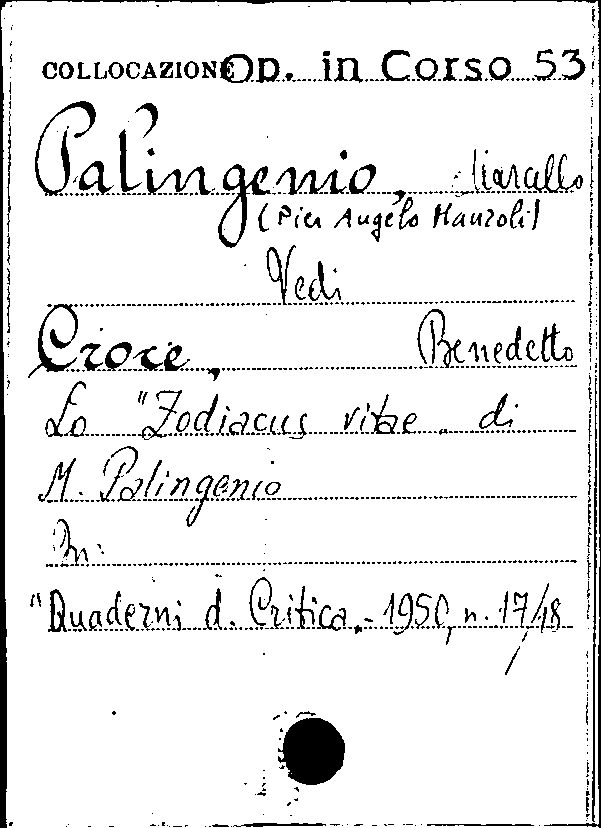 COLLOCAZIONE Op. in Corso 53
Palingenio, Marcello
(Pier Angelo Manzoli)
Vedi
Croce, Benedetto
Lo "Zodiacus vitae„ di
M. Palingenio
In:
"Quaderni d. Critica„- 1950, n. 17/18